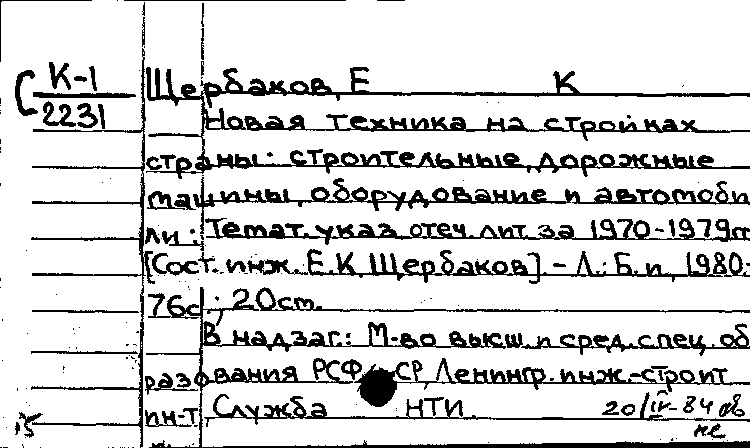 С К-1 Щербаков, Е К
2231 Новая техника на стройках
страны: строительные, дорожные
машины, оборудование и автомоби
ли: Темат. указ. отеч. лит. за 1970-1979гг
[Сост. инж. Е.К. Щербаков] - Л.: Б. и, 1980.-
76с.; 20см.
В надзаг.: М-во высш. и сред. спец. об
разования РСФСР, Ленингр. инж.-строит
ин-т, Служба НТИ. 20/IV-84